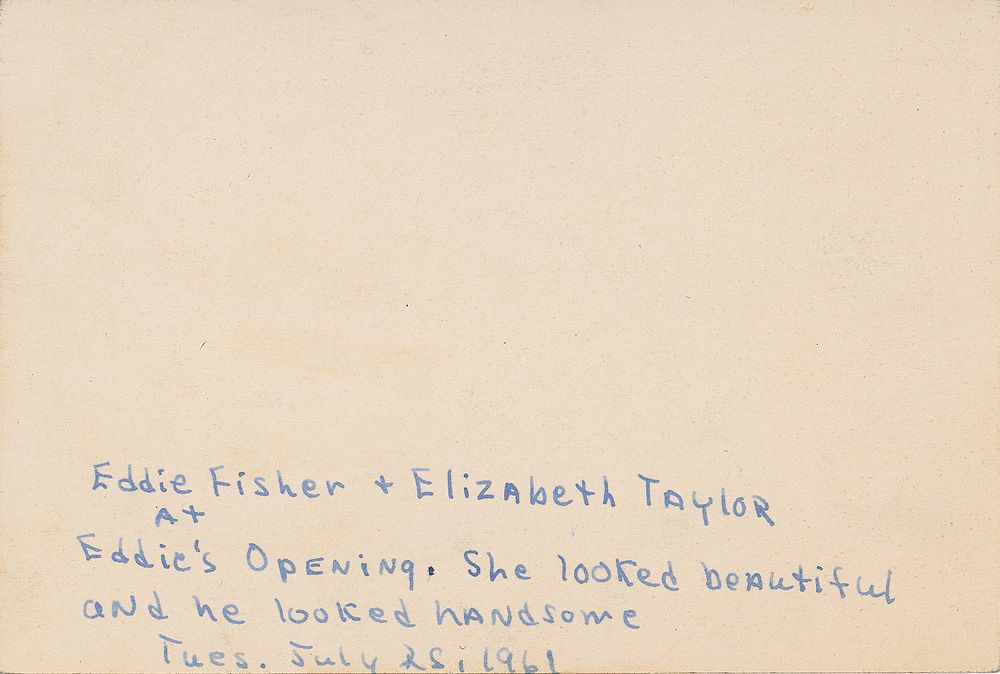 Eddie Fisher + Elizabeth Taylor
At
Eddie's Opening. She looked beautiful
and he looked handsome
Tues. July 25, 1961